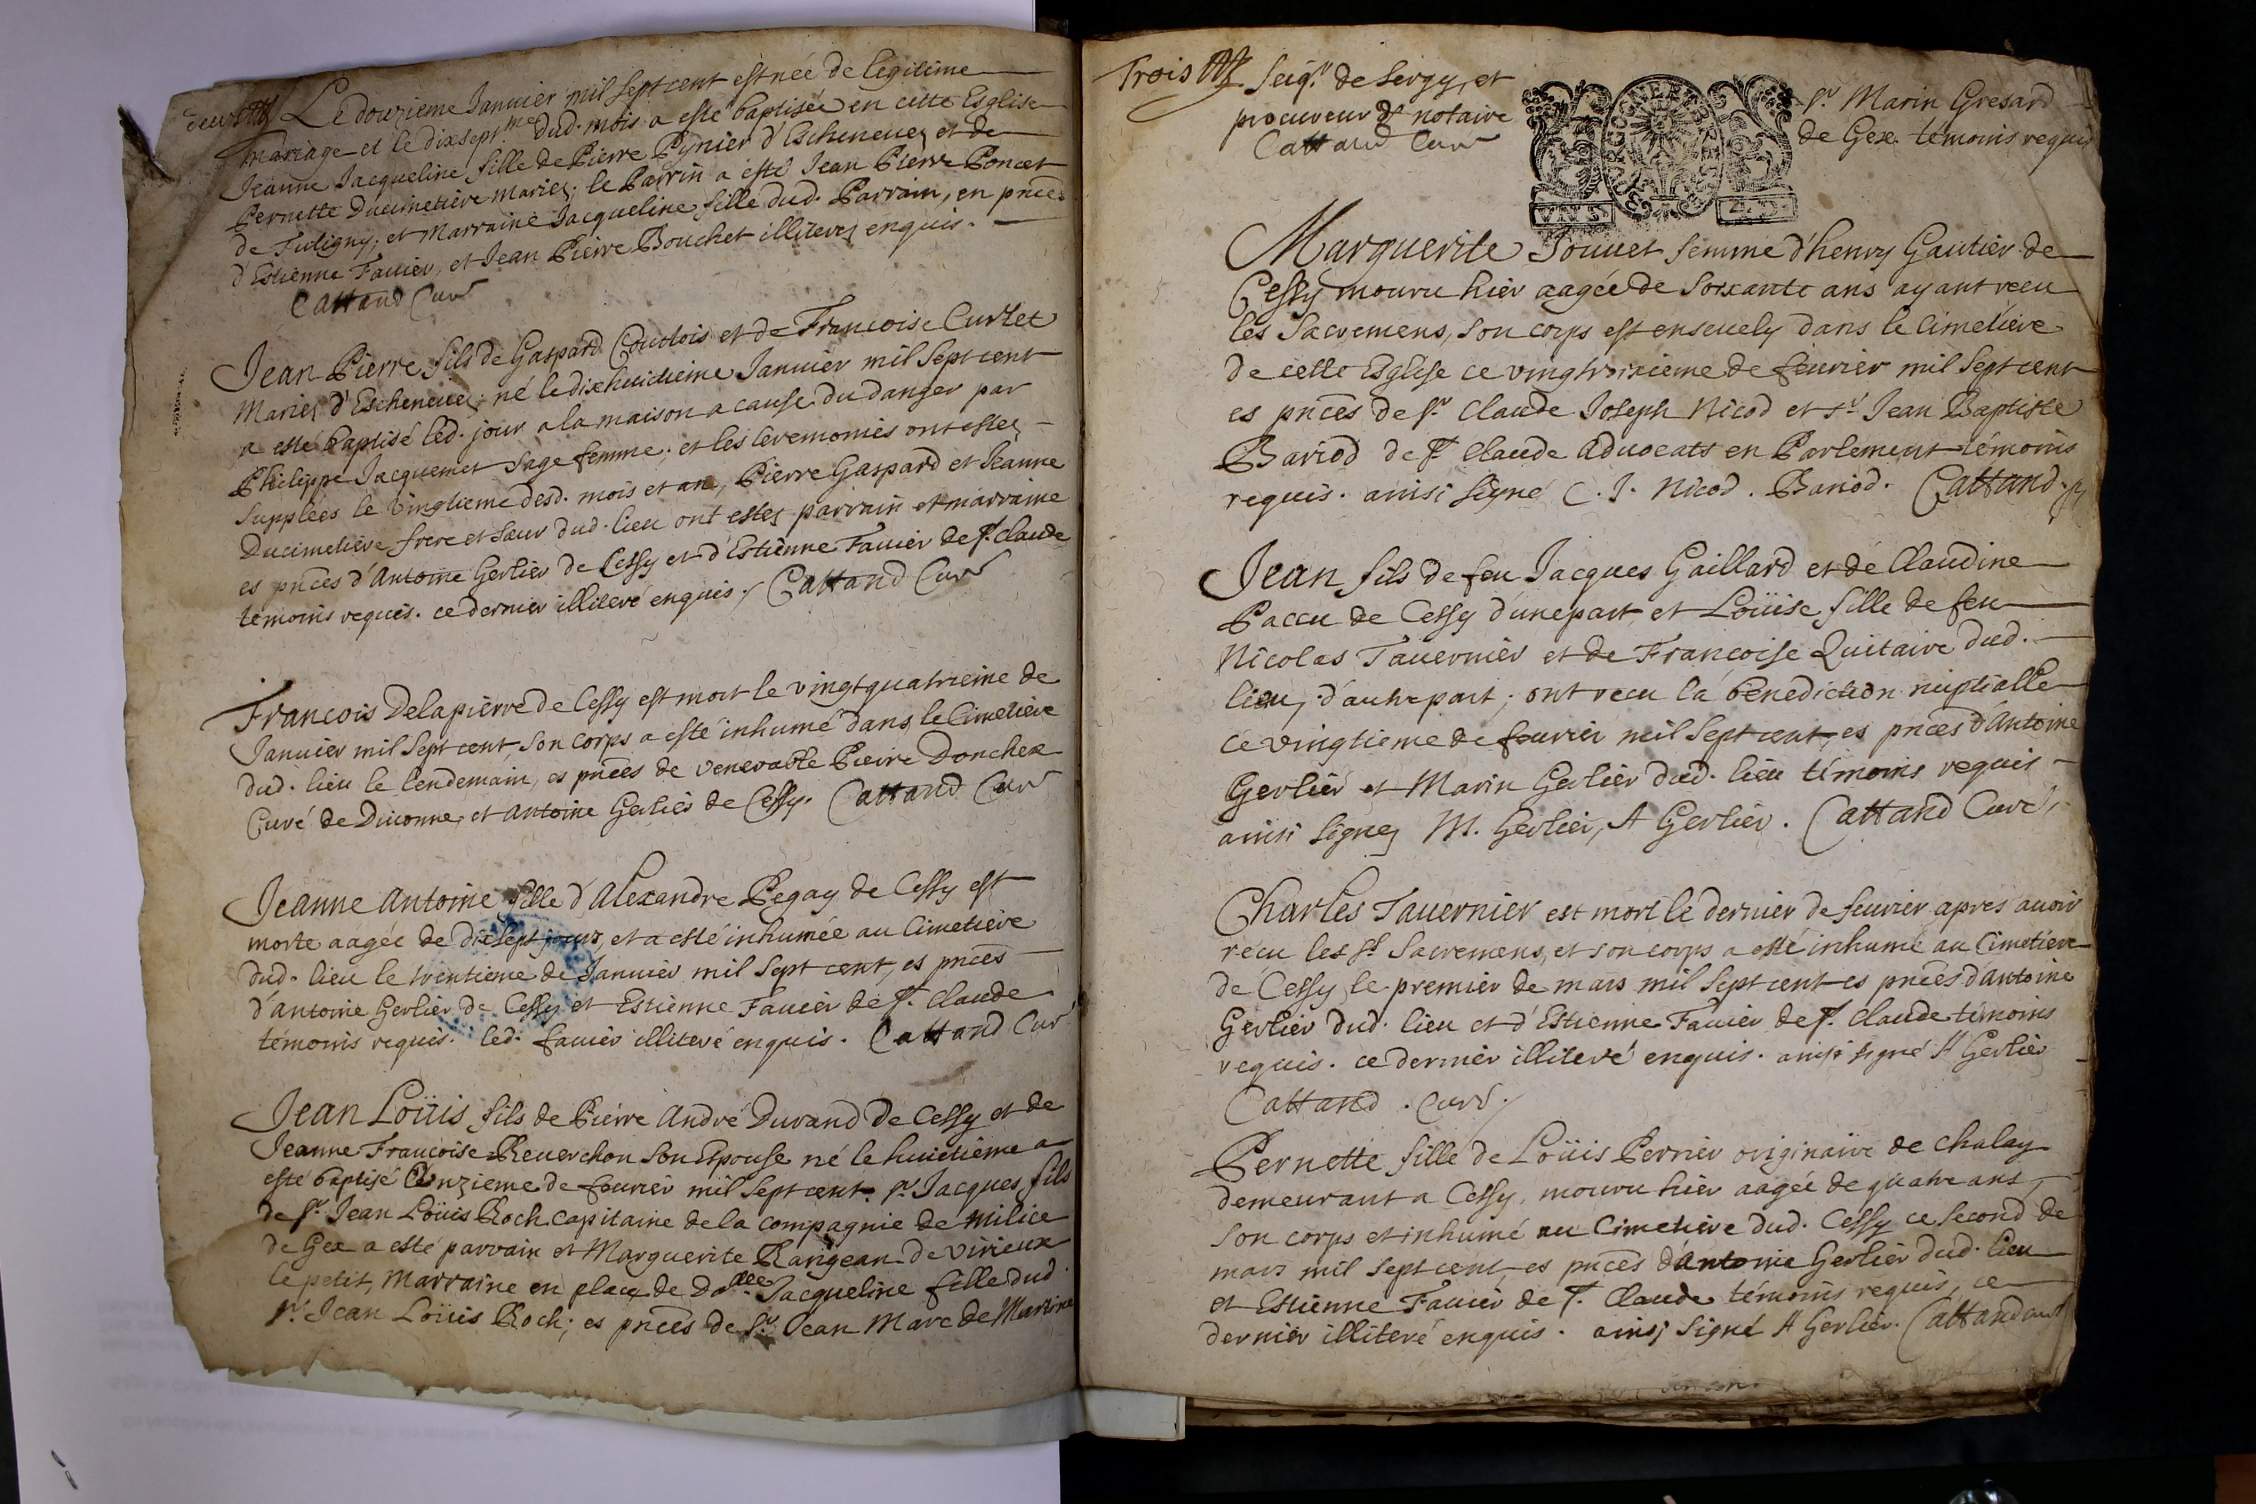 deux Le douzieme Januier mil Sept cent est née de legitime
mariage et le dix sept.me dud. mois a esté baptisée en cette Esglise
Jeanne Jacqueline fille de Pierre Pynier d'Escheneuex et de
Pernette Ducimetiere mariez; le Parrin a esté Jean Pierre Poncet
de Tutigny, et Marraine Jacqueline fille dud. Parrain, en pnces
d'Estienne Fauier, et Jean Pierre Bouchet illiterez enquis.
Cattand Curé
Jean Pierre fils de Gaspard Coudois et de Francoise Curlet
Mariez d'Escheneuex; né le dixhuictieme Januier mil Sept cent
a esté baptisé led. jour a la maison a cause du danger par
Philippe Jacquemet Sage femme; et les ceremonies ont estez
supplées le vingtieme desd. mois et an, Pierre Gaspard et Jeanne
Ducimetiere frere et sœur dud. lieu ont estez parrain et marraine
es pnces d'Antoine Gerlier de Cessy et d'Estienne Fauier de St. Claude
témoins requis. ce dernier illiteré enquis. Cattand Curé
Francois Delapierre de Cessy est mort le vingtquatrieme de
Januier mil Sept cent, son corps a esté inhumé dans le Cimetiere
dud. lieu le lendemain, es pnces de venerable Pierre Donchex
Curé de Diuonne, et Antoine Gerlier de Cessy. Cattand Curé
Jeanne Antoine fille d'Alexandre Pegay de Cessy est
morte aagée de dix sept jours, et a esté inhumée au Cimetiere
dud. lieu le trentieme de Januier mil Sept cent, es pnces
d'Antoine Gerlier de Cessy et Estienne Fauier de St. Claude
témoins requis. led. fauier illiteré enquis. Cattand Curé
Jean Loüis fils de Pierre André Durand de Cessy et de
Jeanne Francoise Reuerchon son Espouse né le huictieme a
esté baptisé Onzieme de feurier mil Sept cent. Sr. Jacques fils
de Sr. Jean Loüis Roch capitaine de la compagnie de milice
de Gex a esté parrain et Marguerite Rangean de Virieux
le petit, Marraine en place de Dolle. Jacqueline fille dud
Sr. Jean Loüis Roch; es pnces de Sr. Jean Marc de Martine
Trois Seigr. de Sergy, et
procureur et notaire
Cattand Curé
Sr. Marin Gresard
de Gex. témoins requis
Marguerite Jouuet femme d'henry Gautier de
Cessy mouru hier aagée de soixante ans ayant receu
les Sacremens, son corps est enseuely dans le Cimetiere
de cette Esglise ce vingtroisieme de feurier mil Sept cent
es pnces de Sr. Claude Joseph Nicod et Sr. Jean Baptiste
Bariod de St. Claude aduocats en Parlement témoins
requis. ainsi signé C. J. Nicod. Bariod. Cattand.
Jean fils de feu Jacques Gaillard et de Claudine
Paccu de Cessy d'une part, et Loüise fille de feu
Nicolas Tauernier et de Francoise Quitaire dud.
lieu, d'autre part; ont recu la benediction nuptialle
ce vingtieme de feurier mil Sept cent, es pnces d'Antoine
Gerlier et Marin Gerlier dud. lieu témoins requis
ainsi signez M. Gerlier, A Gerlier. Cattand Curé
Charles Tauernier est mort le dernier de feurier apres auoir
recu les Sts. Sacremens, et son corps a esté inhumé au Cimetiere
de Cessy le premier de mars mil Sept cent es pnces d'Antoine
Gerlier dud. lieu et d'Estienne Fauier de St. Claude témoins
requis. ce dernier illiteré enquis. ainsi signé A Gerlier
Cattand. Curé.
Pernette fille de Loüis Perrier originaire de Chalay
demeurant a Cessy, mouru hier aagée de quatre ans,
son corps est inhumé au Cimetiere dud. Cessy ce second de
mars mil Sept cent, es pnces d'Antoine Gerlier dud. lieu
et Estienne Fauier de St. Claude témoins requis, ce
dernier illiteré enquis. ainsi signé A Gerlier. Cattand curé